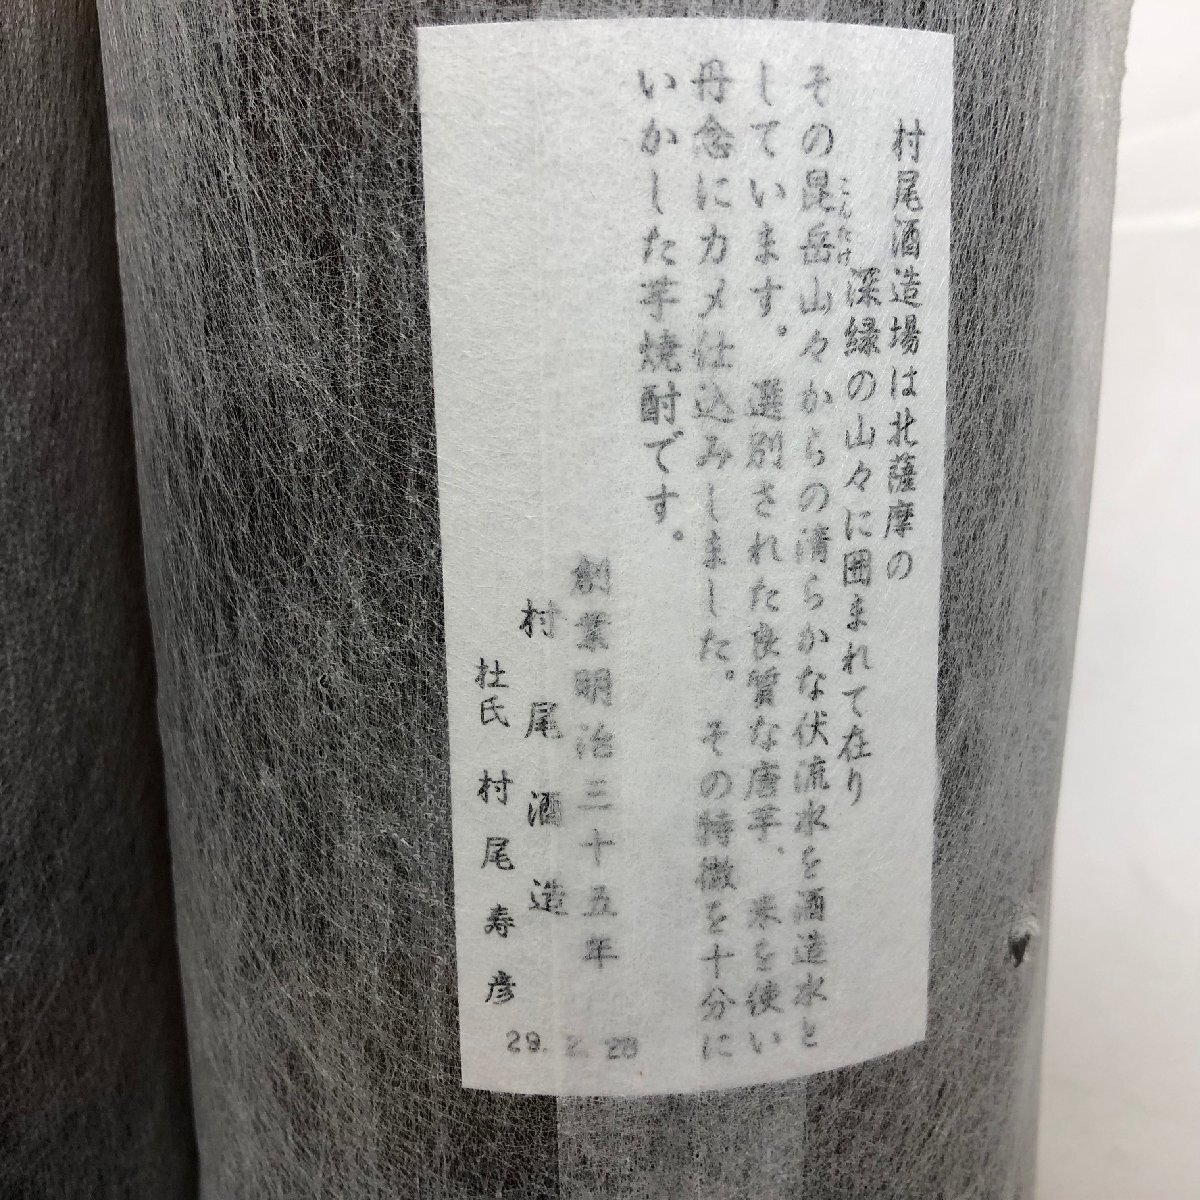 村尾酒造場は北薩摩の
深緑の山々に囲まれて在り
こんたけ
その昆岳山々からの清らかな伏流水を酒造水と
しています。選別された良質な唐芋、米を使い
丹念にカメ仕込みしました。その特徴を十分に
いかした芋焼酎です。
創業明治三十五年
村尾酒造
杜氏 村尾寿彦
29.2.28